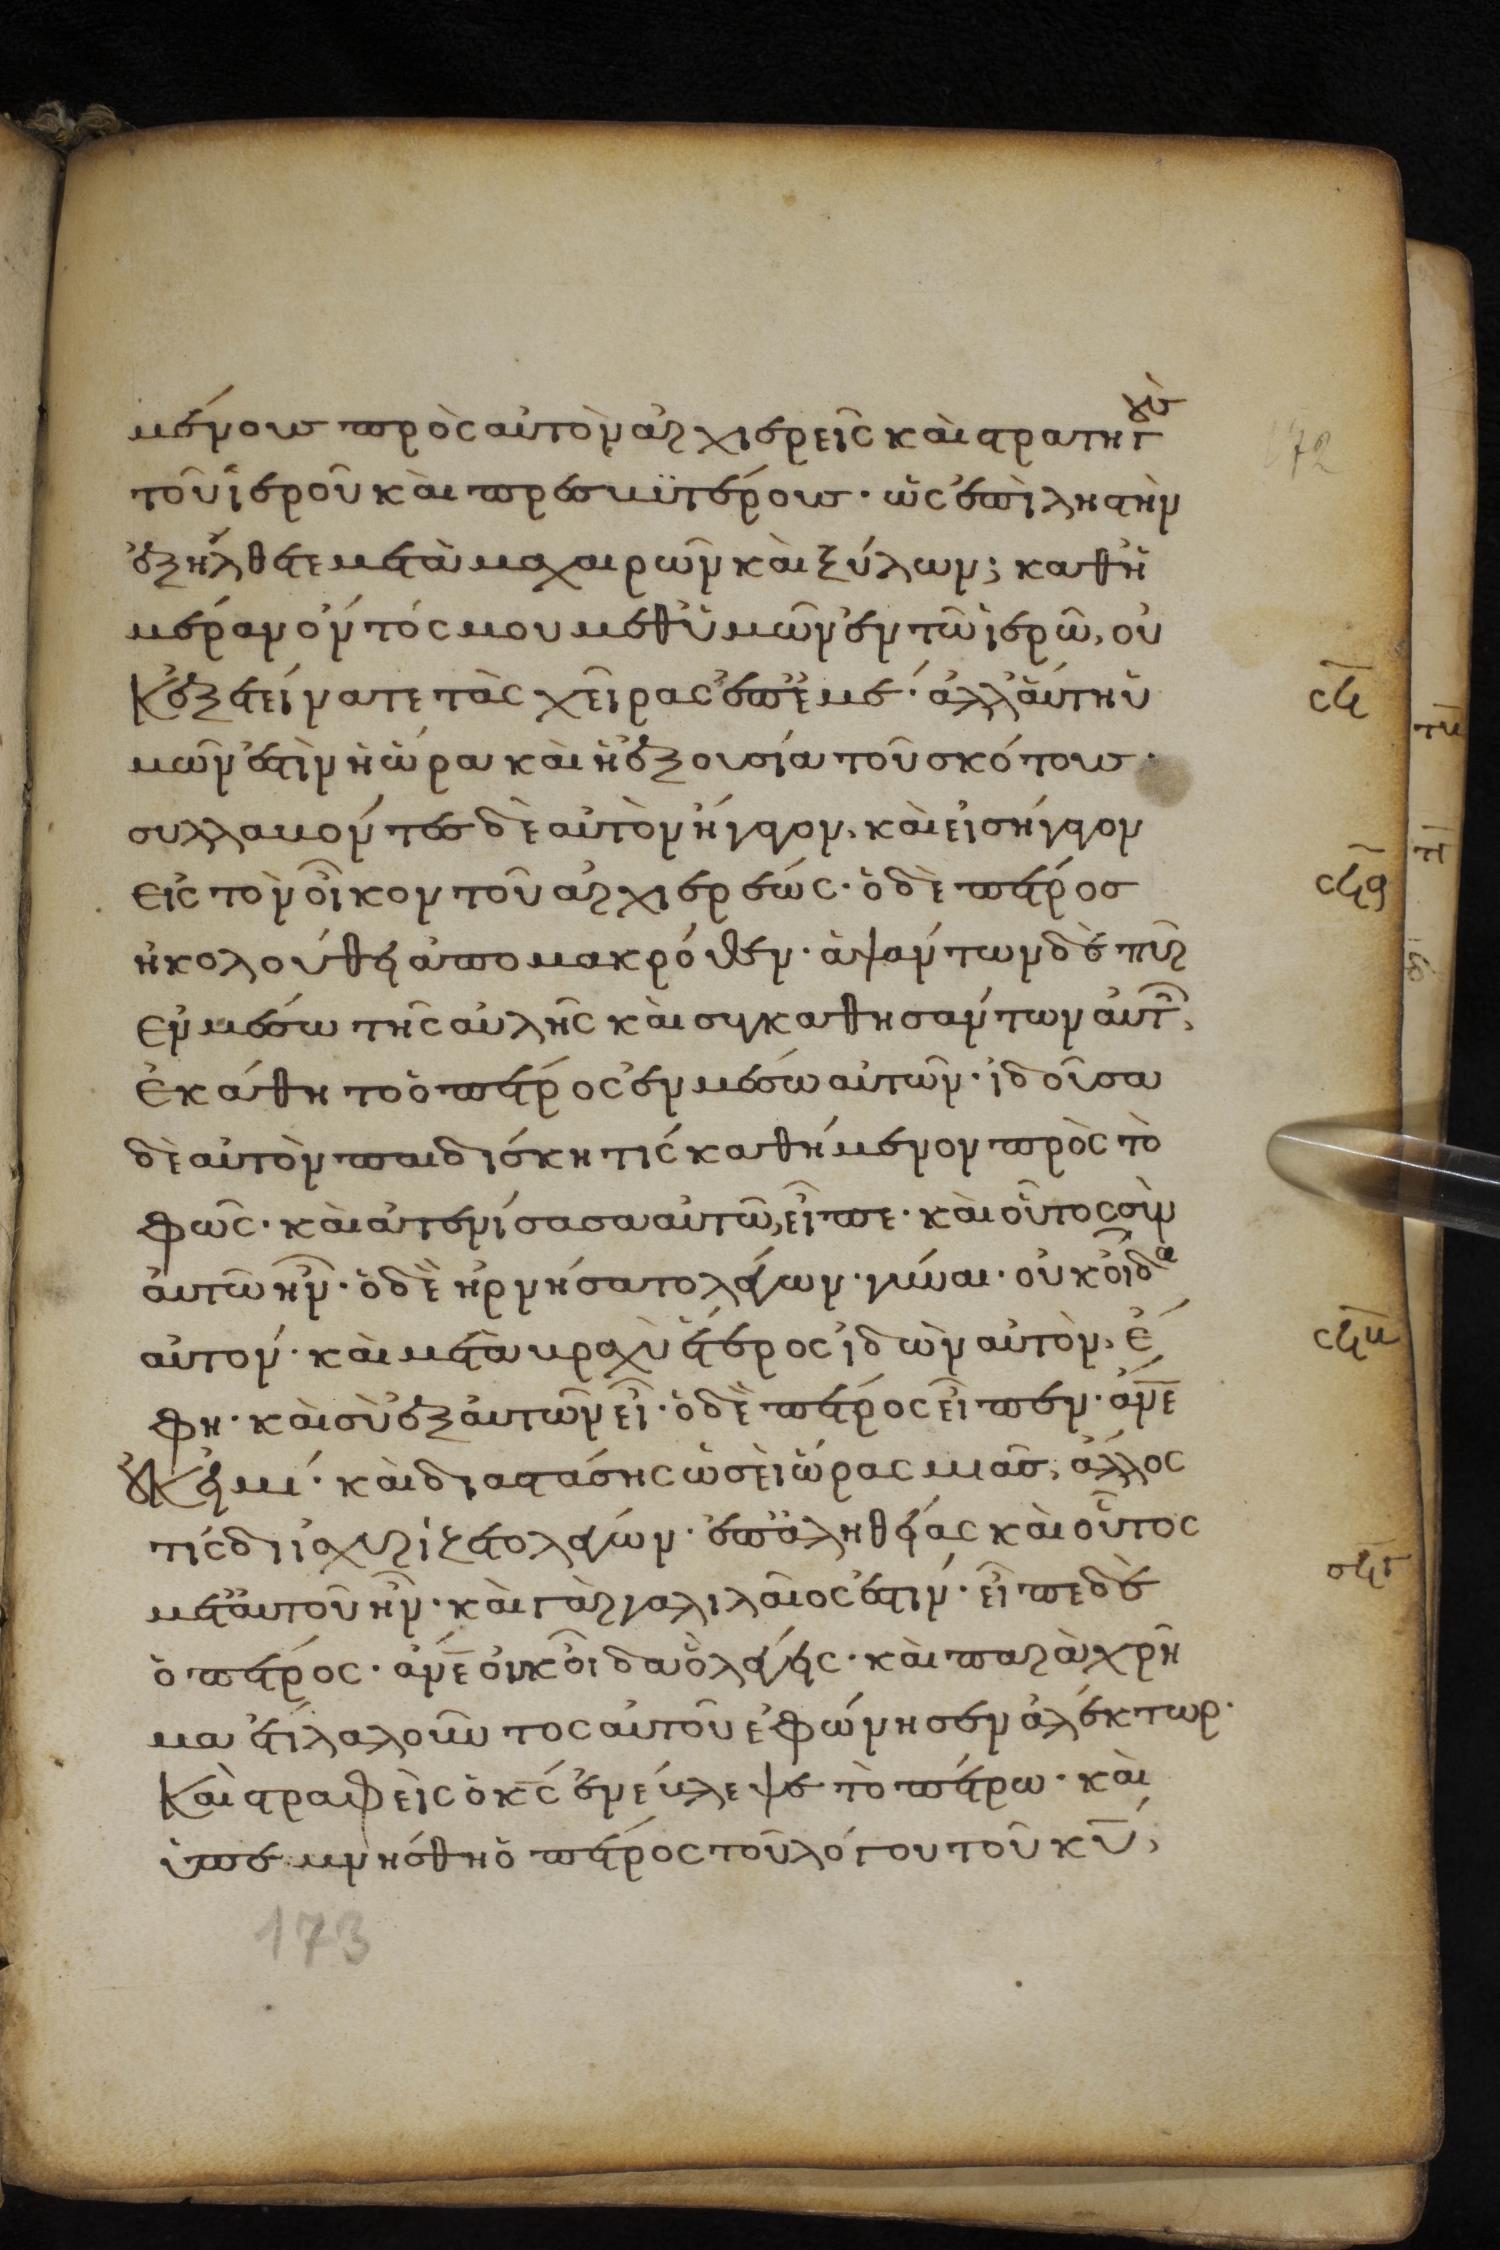 μένους πρὸς αὐτὸν ἀρχιερεῖς καὶ στρατηγοὺς
172
τοῦ ἱεροῦ καὶ πρεσβϋτέρους· ὡς ἐπὶ ληστὴν
ἐξήλθετε μετὰ μαχαιρῶν καὶ ξύλων; καθ' ἡ
μέραν ὄντός μου μεθ' ὑμῶν ἐν τῶ ἱερῶ, οὐ
κ ἐξετείνατε τὰς χεῖρας ἐπ' ἐμέ· ἀλλ' αὕτη ὑ
μῶν ἐστὶν ἡ ὥρα καὶ ἡ ἐξουσία τοῦ σκότους·
συλλαβόντες δὲ αὐτὸν ἤγαγον, καὶ εἰσήγαγον
εἰς τὸν οἶκον τοῦ ἀρχιερέως· ὁ δὲ πέτρος
ἠκολούθει ἀπομακρόθεν· ἁψάντων δὲ πῦρ
ἐν μέσω τῆς αὐλῆς καὶ συγκαθησάντων αὐτ̑,
ἐκάθητο ὁ πέτρος ἐν μέσω αὐτῶν· ἰδοῦσα
δὲ αὐτὸν παιδίσκη τίς καθήμενον πρὸς τὸ
φῶς· καὶ ἀτενίσασα αὐτῶ, εἶπε· καὶ οὗτος σὺν
αὐτῶ ἦν· ὁ δὲ ἠρνήσατο λέγων· γύναι· οὐκ οἶδα
αὐτόν· καὶ μετὰ βραχὺ ἕτερος ἰδὼν αὐτὸν, ἔ
φη· καὶ σὺ ἐξ αὐτῶν εἶ· ὁ δὲ πέτρος εἶπεν· ἄν̅ε
οὐκ εἰμί· καὶ διαστάσης ὡσεὶ ὥρας μιᾶς, ἄλλος
τίς διϊσχυρίζετο λέγων· ἐπ' ἀληθείας καὶ οὗτος
μετ' αὐτοῦ ἦν· καὶ γὰρ γαλιλαῖος ἐστίν· εἶπε δὲ
ὁ πέτρος· ἄν̅ε οὐκ οἶδα ὃ λέγεις· καὶ παραχρῆ
μα ἔτι λαλοῦντος αὐτοῦ ἐφώνησεν ἀλέκτωρ·
καὶ στραφεὶς ὁ κ̅ς ἐνέβλεψε τὸ πέτρω· καὶ
ὑπεμνήσθη ὁ πέτρος τοῦ λόγου τοῦ κ̅υ,
173